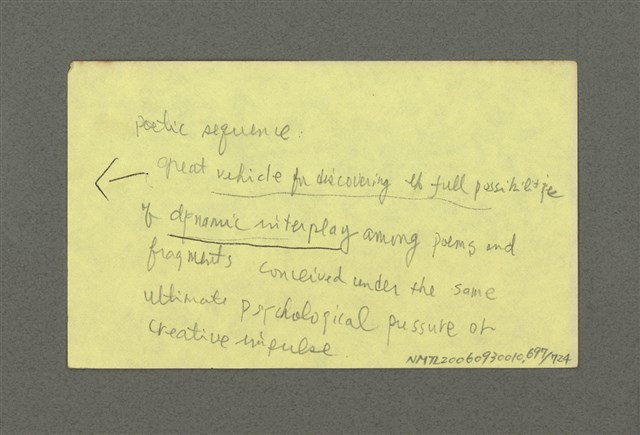 poetic sequence:
great vehicle for discovering the full possibilities
of dynamic interplay among poems and
fragments conceived under the same
ultimate psychological pressure or
creative impulse.
NMTL20060930010,697/724